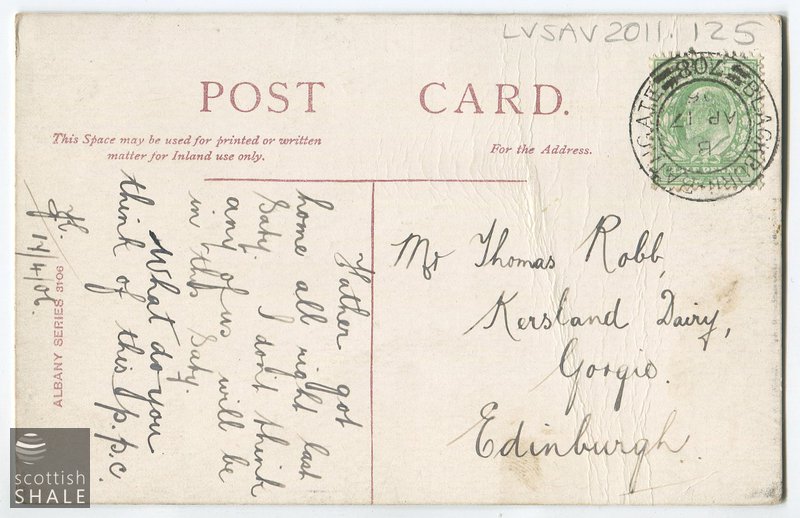 LVSAV2011.125
POST CARD.
This Space may be used for printed or written
matter for Inland use only.
For the Address.
BLACKBURN BATHGATE
708
B
AP 17
06
Father got
home all right last
Saty. I don't think
any of us will be
in this Saty.
What do you
think of this p.p.c.
17/4/06.
Mr Thomas Robb,
Kersland Dairy,
Gorgie.
Edinburgh.
ALBANY SERIES 3106
scottish
SHALE